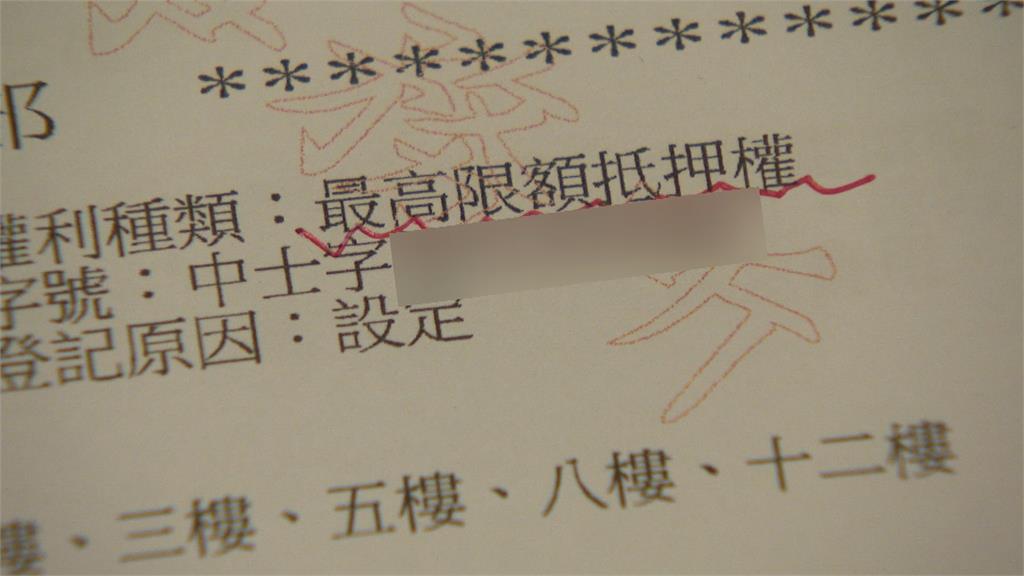 部 * * * * * * * * * * * * *
權利種類：最高限額抵押權
字號：中士字
登記原因：設定
樓、三樓、五樓、八樓、十二樓